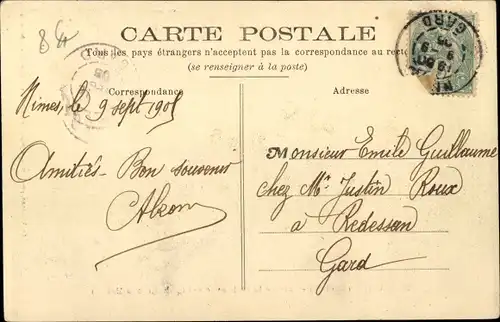 8
CARTE POSTALE
Tous les pays étrangers n'acceptent pas la correspondance au recto
(se renseigner à la poste)
Correspondance
Adresse
GARD
Nimes, le 9 sept. 1905
Amitiés. Bon souvenir
Monsieur Emile Guillaume
chez Mr Justin Roux
à Redessan
Gard